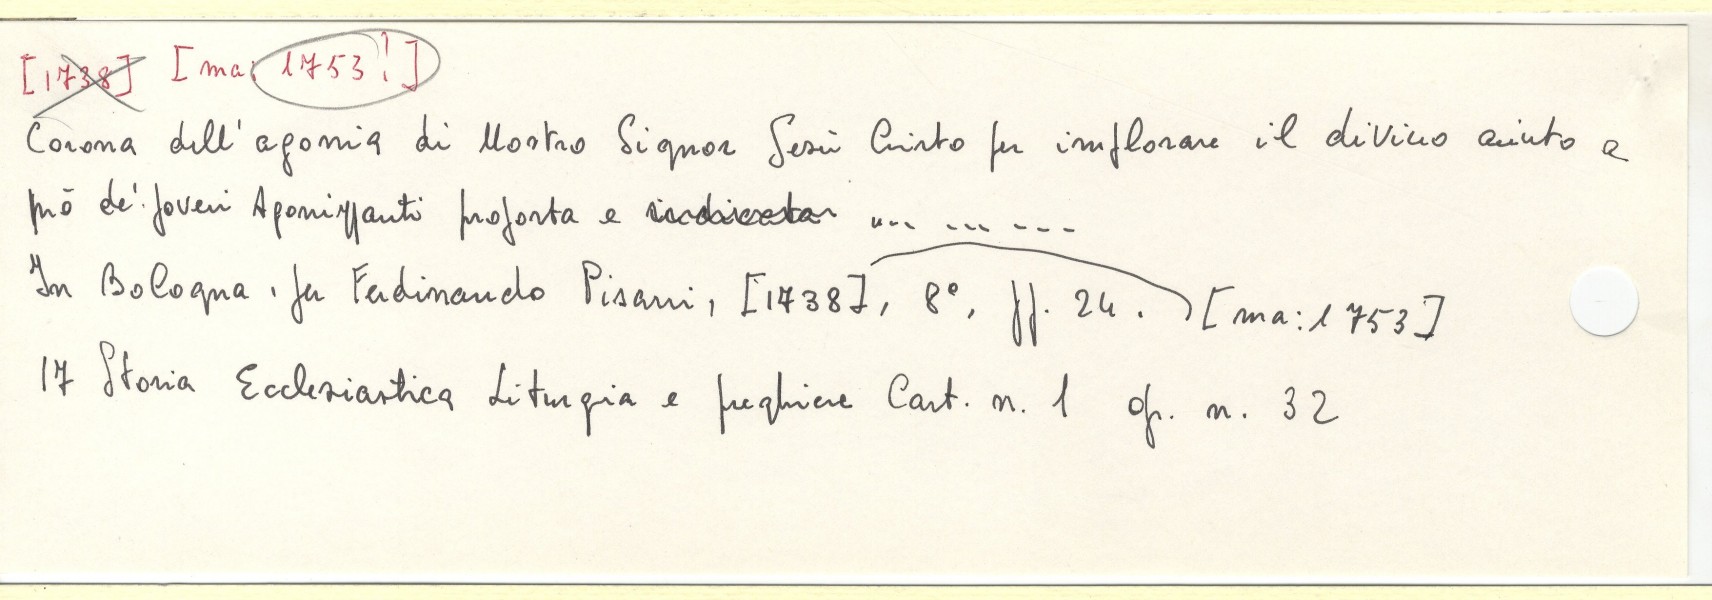 [1738] [ma: 1753!]
Corona dell'agonia di Nostro Signor Gesù Cristo per implorare il divino aiuto a
prò de' poveri Agonizzanti proposta e indicata ... ... ...
In Bologna, per Ferdinando Pisarri, [1738], 8°, pp. 24. [ma: 1753]
17 Storia Ecclesiastica Liturgia e preghiere Cart. n. 1 op. n. 32